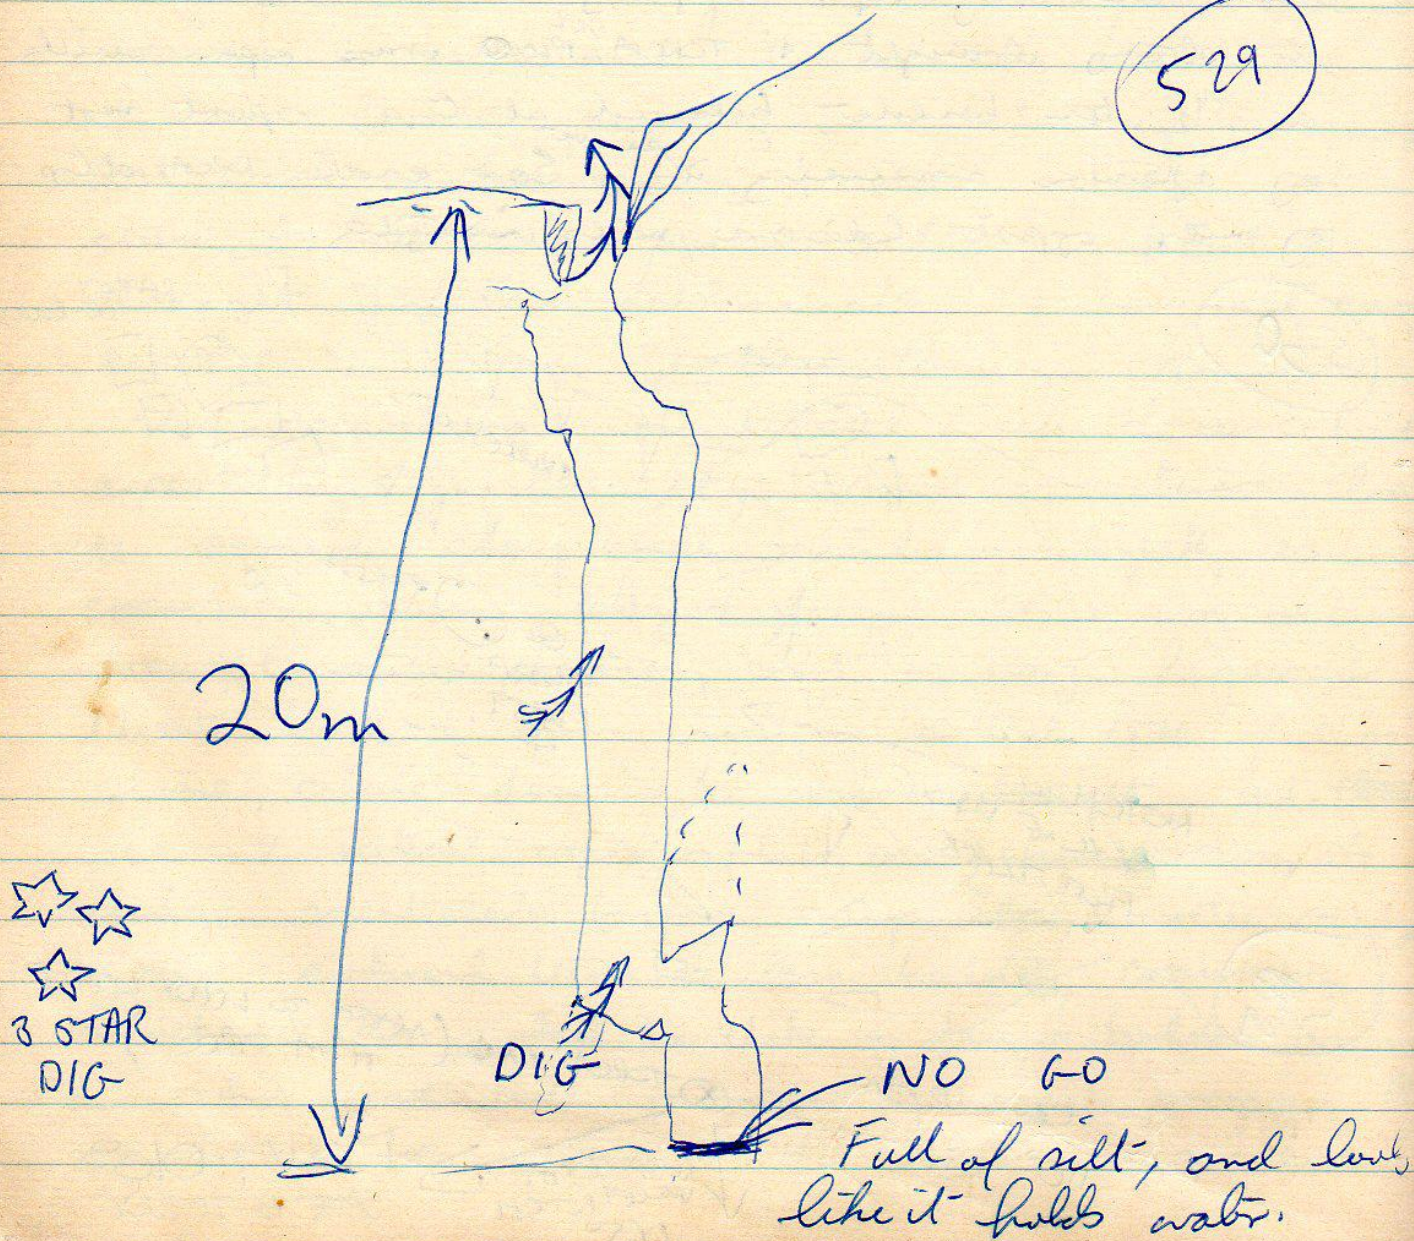 529
20m
3 STAR
DIG
DIG
NO GO
Full of silt, and looks
like it holds water.